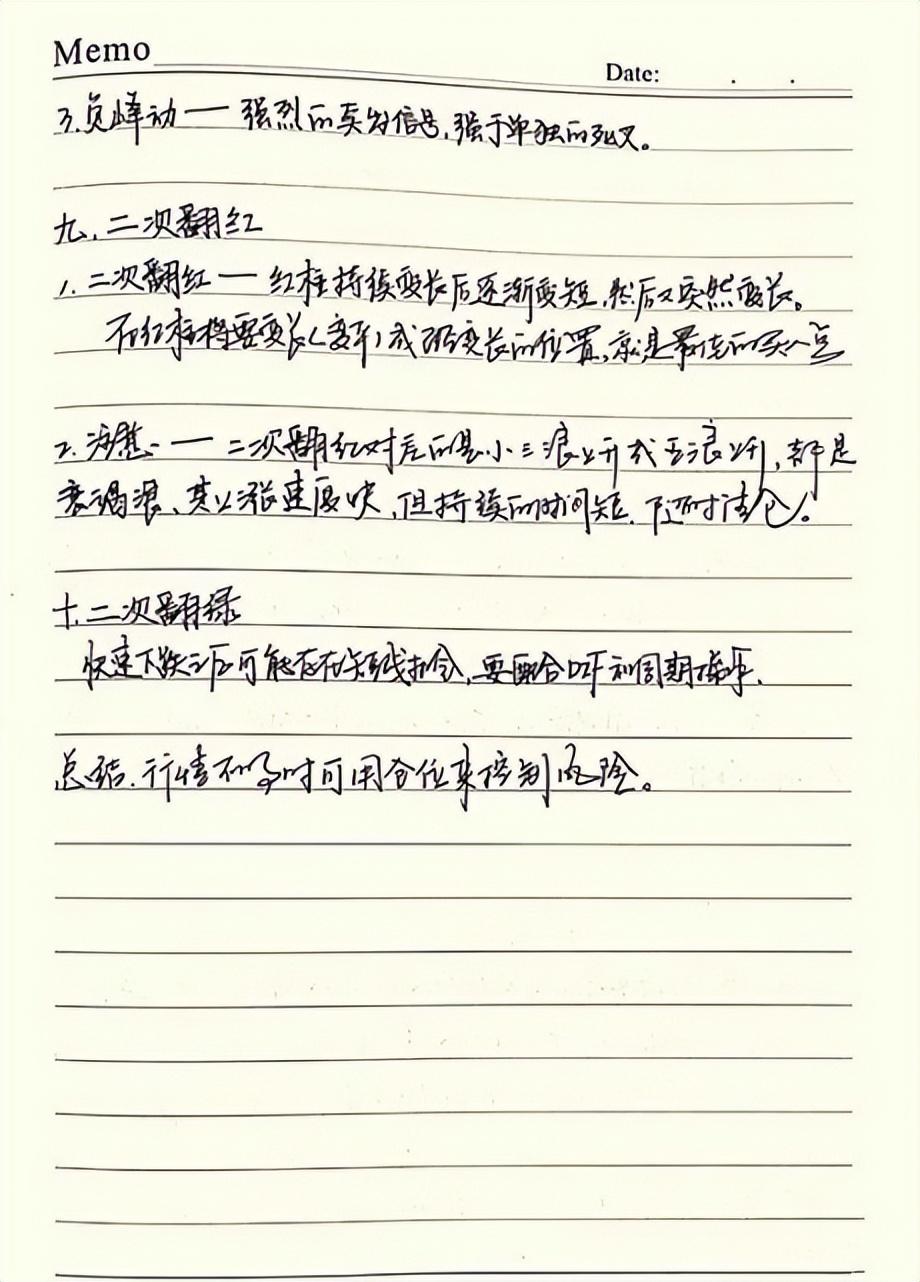 Memo
Date: . .
3.负峰动——强烈的卖出信号,强于单独的死叉。
九.二次翻红
1.二次翻红——红柱持续变长后逐渐变短,然后又突然变长。
在红柱将要变长(变平)或刚变长的位置,就是最佳的买入点
2.注意——二次翻红对应的是小三浪上升或五浪上升,都是
衰竭浪、其上涨速度快,但持续的时间短.随时清仓。
十.二次翻绿
快速下跌之后可能存在短线机会,要配合 和周期操作.
总结.行情不好时可用仓位来控制风险。